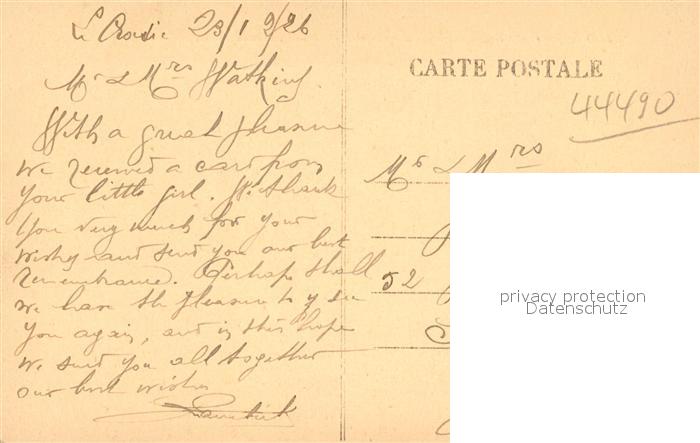 23/1 926
Mr & Mrs Watkins.
With a great pleasure
we received a card from
your little girl. We thank
you very much for your
wishes and send you our best
remembrance. Perhaps shall
we have the pleasure to y see
you again, and in this hope
we send you all together
our best wishes
CARTE POSTALE
44490
Mr & Mrs
52
privacy protection
Datenschutz